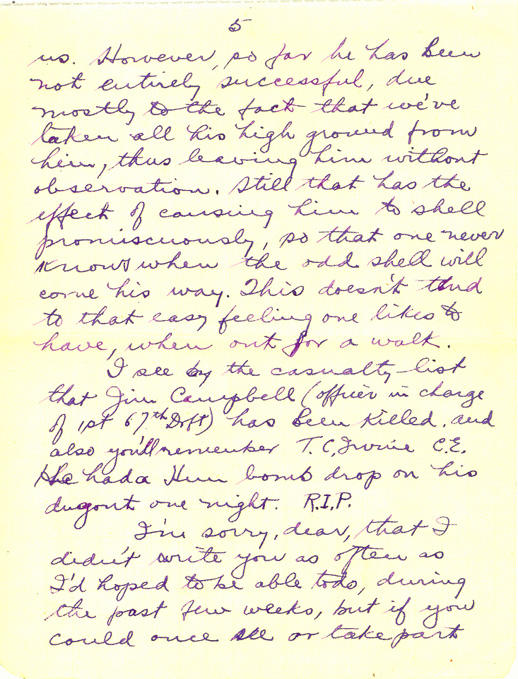 5
us. However, so far he has been
not entirely successful, due
mostly to the fact that we've
taken all his high ground from
him, thus leaving him without
observation. Still that has the
effect of causing him to shell
promiscuously, so that one never
knows when the odd shell will
come his way. This doesn't tend
to that easy feeling one likes to
have, when out for a walk.
I see by the casualty-list
that Jim Campbell (officer in charge
of 1st 67th Drft) has been killed. and
also you'll remember T.C. Irvine C.E.
He had a Hun bomb drop on his
dugout one night. R.I.P.
I'm sorry, dear, that I
didn't write you as often as
I'd hoped to be able to do, during
the past few weeks, but if you
could once see or take part